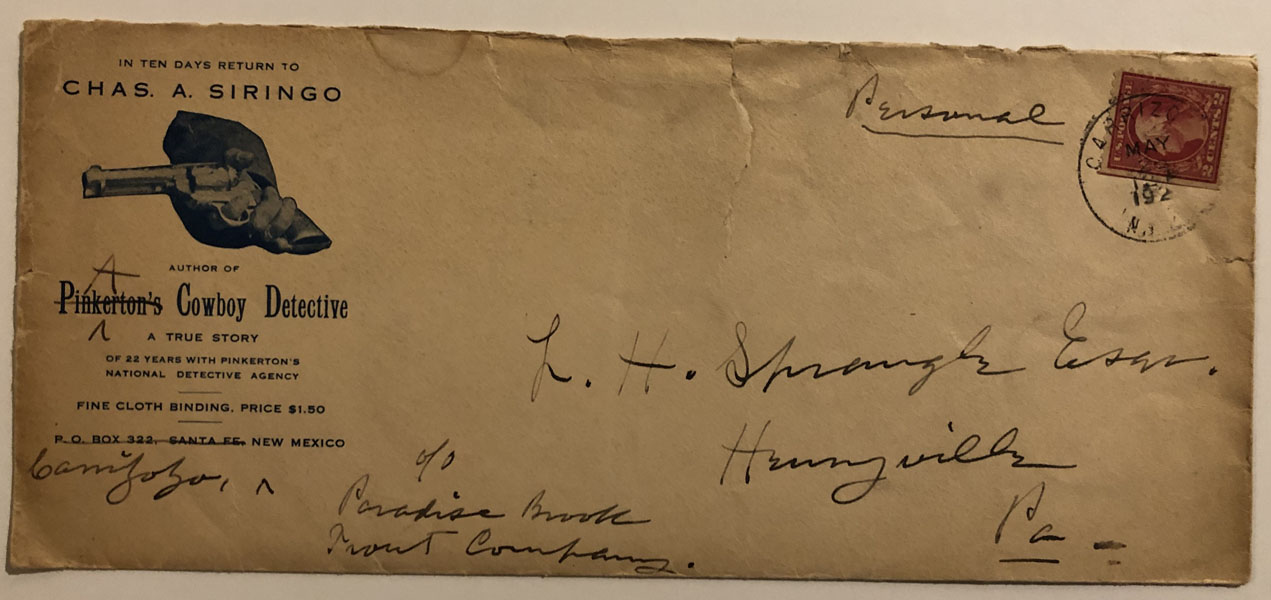 IN TEN DAYS RETURN TO
CHAS. A. SIRINGO
AUTHOR OF
A
Pinkerton's Cowboy Detective
A TRUE STORY
OF 22 YEARS WITH PINKERTON'S
NATIONAL DETECTIVE AGENCY
FINE CLOTH BINDING. PRICE $1.50
P. O. BOX 322, SANTA FE, NEW MEXICO
Carrizozo,
Personal
MAY
2 CENTS 2
L. H. Sprangle Esqr.
Henryville
Pa
c/o
Paradise Brook
Trout Company.